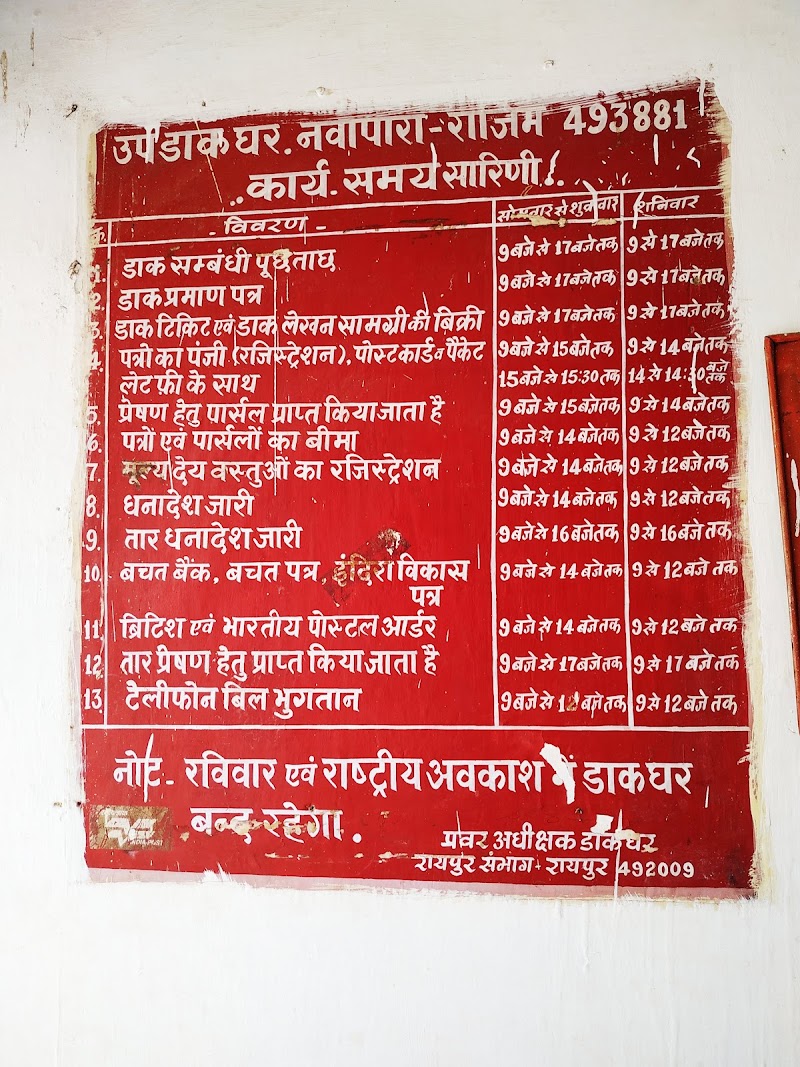 उप डाक घर. नवापारा-राजिम 493881
..कार्य. समय सारिणी..
क्र. - विवरण - सोमवार से शुक्रवार शनिवार
1. डाक सम्बंधी पूछताछ 9 बजे से 17 बजे तक 9 से 17 बजे तक
2. डाक प्रमाण पत्र 9 बजे से 17 बजे तक 9 से 17 बजे तक
3. डाक टिकिट एवं डाक लेखन सामग्री की बिक्री 9 बजे से 17 बजे तक 9 से 17 बजे तक
4. पत्रो का पंजी (रजिस्ट्रेशन), पोस्टकार्ड व पैकेट 9 बजे से 15 बजे तक 9 से 14 बजे तक
लेट फ़ी के साथ 15 बजे से 15:30 तक 14 से 14:30 बजे तक
5. प्रेषण हेतु पार्सल प्राप्त किया जाता है 9 बजे से 15 बजे तक 9 से 14 बजे तक
6. पत्रों एवं पार्सलों का बीमा 9 बजे से 14 बजे तक 9 से 12 बजे तक
7. मूल्य देय वस्तुओं का रजिस्ट्रेशन 9 बजे से 14 बजे तक 9 से 12 बजे तक
8. धनादेश जारी 9 बजे से 14 बजे तक 9 से 12 बजे तक
9. तार धनादेश जारी 9 बजे से 16 बजे तक 9 से 16 बजे तक
10. बचत बैंक, बचत पत्र, इंदिरा विकास 9 बजे से 14 बजे तक 9 से 12 बजे तक
पत्र
11. ब्रिटिश एवं भारतीय पोस्टल आर्डर 9 बजे से 14 बजे तक 9 से 12 बजे तक
12. तार प्रेषण हेतु प्राप्त किया जाता है 9 बजे से 17 बजे तक 9 से 17 बजे तक
13. टेलीफोन बिल भुगतान 9 बजे से बजे तक 9 से 12 बजे तक
नोट - रविवार एवं राष्ट्रीय अवकाश में डाकघर
बन्द रहेगा.
प्रवर अधीक्षक डाकघर
रायपुर संभाग - रायपुर 492009
INDIA POST